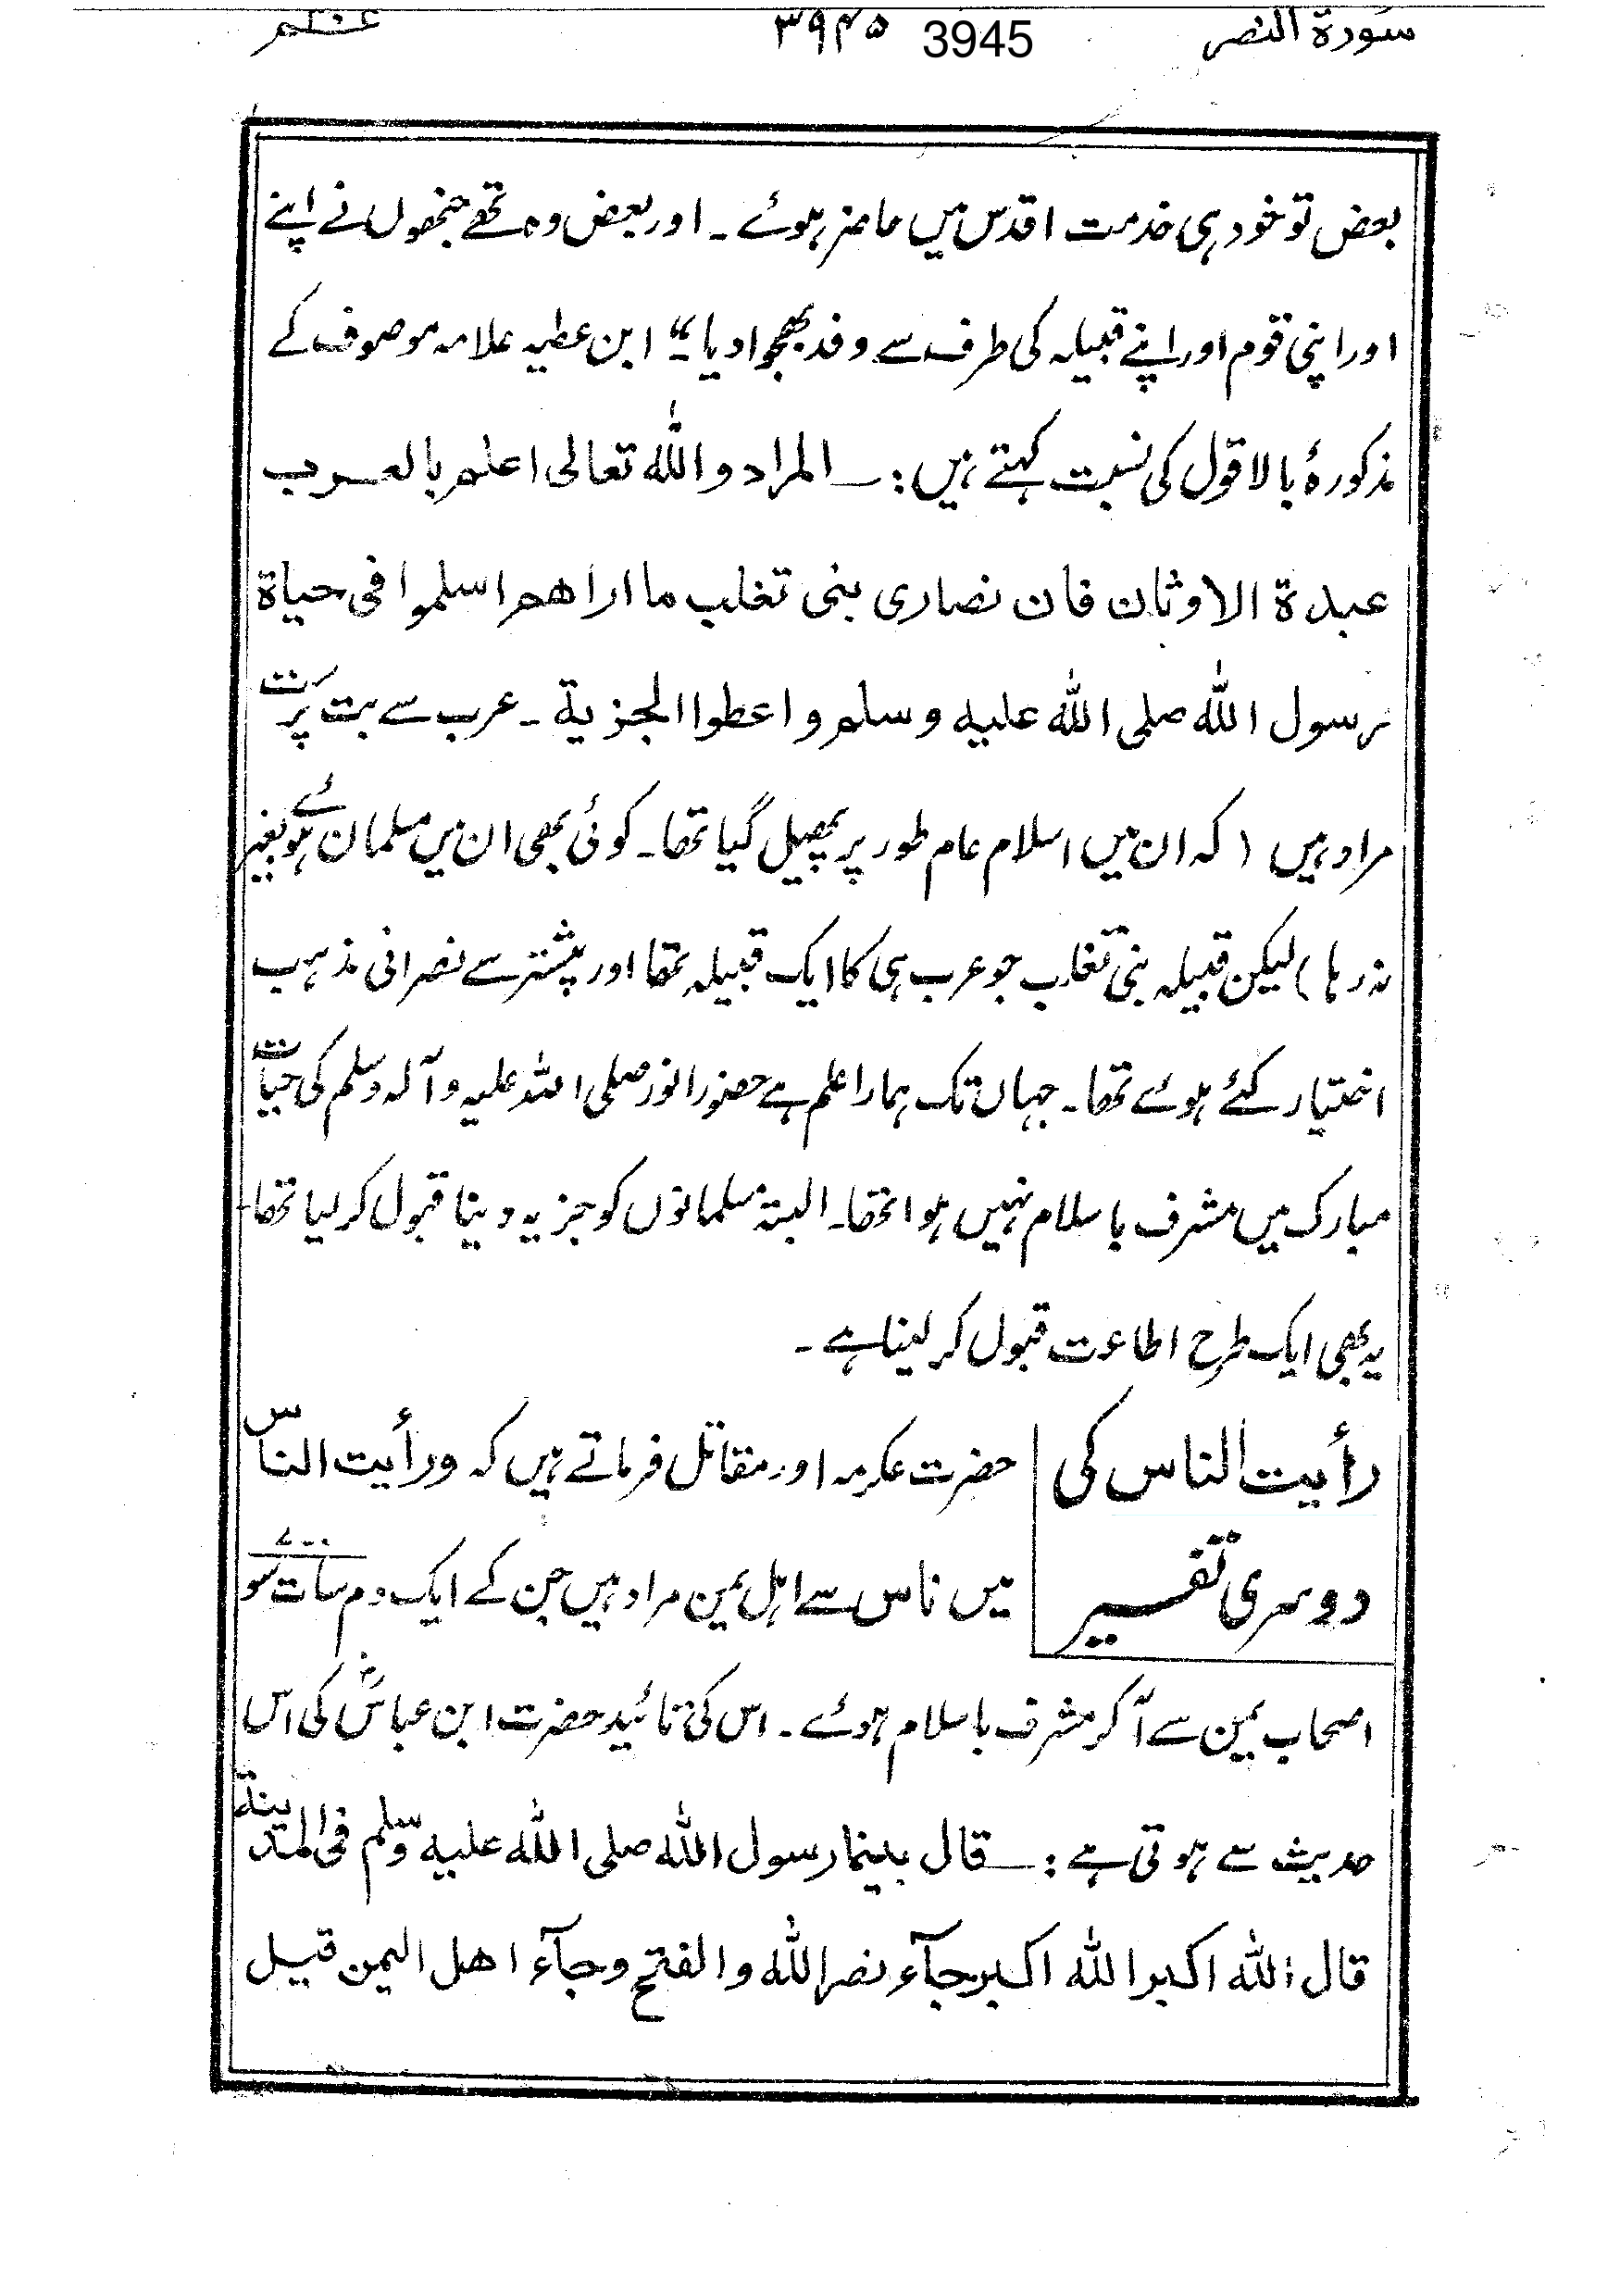 سورة النصر ۳۹۴۵ 3945 عم
بعض تو خود ہی خدمت اقدس میں حاضر ہوئے ۔ اور بعض وہ تھے جنھوں نے اپنے
اور اپنی قوم اور اپنے قبیلہ کی طرف سے وفد بھجوا دیا ۔“ ابن عطیہ علامہ موصوف کے
مذکورۂ بالا قول کی نسبت کہتے ہیں :۔ المراد والله تعالى اعلم بالعرب
عبدة الاوثان فان نصارى بنى تغلب ما اراهم اسلموا فى حياة
رسول الله صلى الله عليه وسلم واعطوا الجزية ۔ عرب سے بت پرست
مراد ہیں ( کہ ان میں اسلام عام طور پر پھیل گیا تھا ۔ کوئی بھی ان میں مسلمان ہوئے بغیر
نہ رہا ) لیکن قبیلہ بنی تغلب جو عرب ہی کا ایک قبیلہ تھا اور پیشتر سے نصرانی مذہب
اختیار کئے ہوئے تھا ۔ جہاں تک ہمارا علم ہے حضور انور صلی اللہ علیہ وآلہ وسلم کی حیات
مبارک میں مشرف باسلام نہیں ہوا تھا ۔ البتہ مسلمانوں کو جزیہ دینا قبول کر لیا تھا ۔
یہ بھی ایک طرح اطاعت قبول کر لینا ہے ۔
رأیت الناس کی
دوسری تفسیر
حضرت عکرمہ اور مقاتل فرماتے ہیں کہ ورأیت الناس
میں ناس سے اہل یمن مراد ہیں جن کے ایک دم سات سو
اصحاب یمن سے آکر مشرف باسلام ہوئے ۔ اس کی تائید حضرت ابن عباسؓ کی اس
حدیث سے ہوتی ہے :۔ قال بينما رسول الله صلى الله عليه وسلم فى المدينة
قال الله اكبر الله اكبر جآء نصر الله والفتح وجآء اهل اليمن قيل